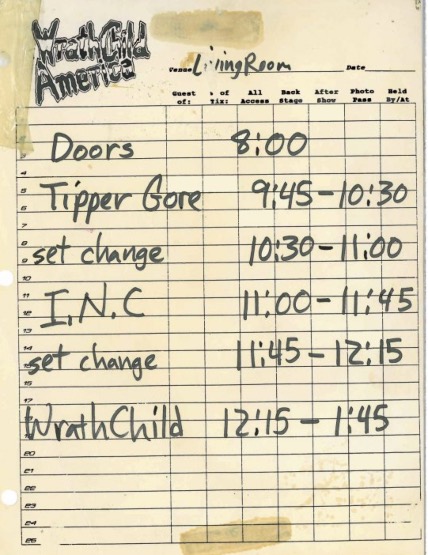 WrathChild
America
Venue LivingRoom Date
Guest of: # of Tix: All Access Back Stage After Show Photo Pass Held By/At
3 Doors 8:00
4
5 Tipper Gore 9:45-10:30
6
7
8 set change 10:30-11:00
9
10
11 I.N.C 11:00-11:45
12
13
14 set change 11:45-12:15
15
17
WrathChild 12:15-1:45
20
21
22
23
24
25